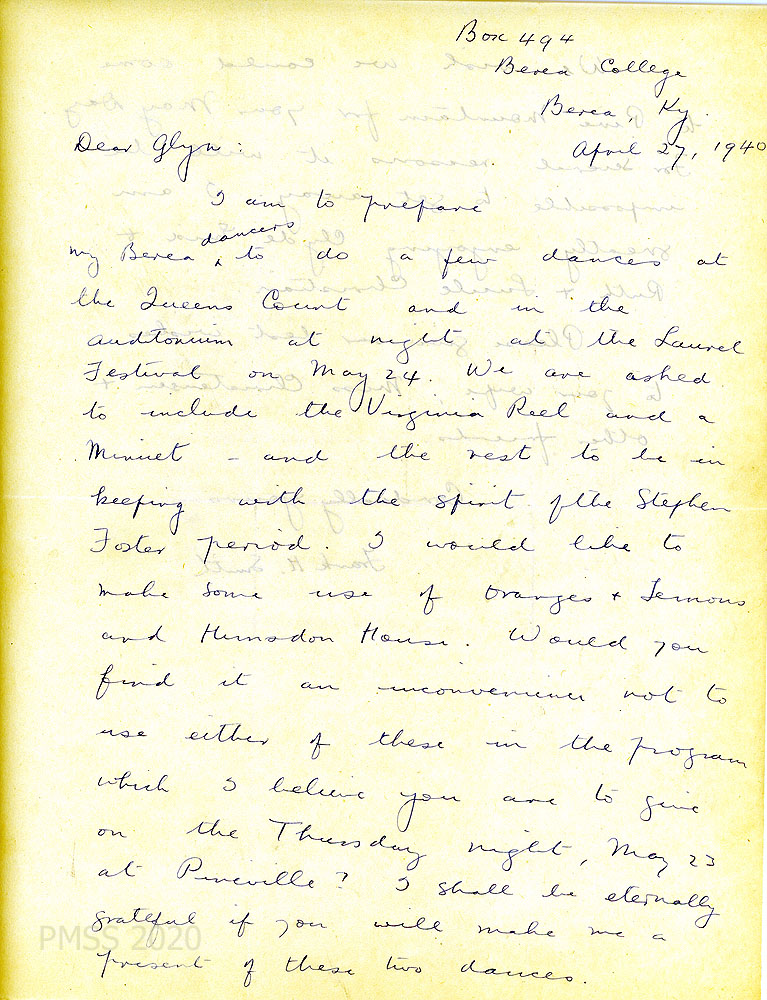 Box 494
Berea College
Berea, Ky.
April 27, 1940
Dear Glyn:
I am to prepare
my Berea dancers to do a few dances at
the Queens Court and in the
auditorium at night at the Laurel
Festival on May 24. We are asked
to include the Virginia Reel and a
Minuet - and the rest to be in
keeping with the spirit of the Stephen
Foster period. I would like to
make some use of Oranges + Lemons
and Hunsdon House. Would you
find it an inconvenience not to
use either of these in the program
which I believe you are to give
on the Thursday night, May 23
at Pineville? I shall be eternally
grateful if you will make me a
present of these two dances.
PMSS 2020